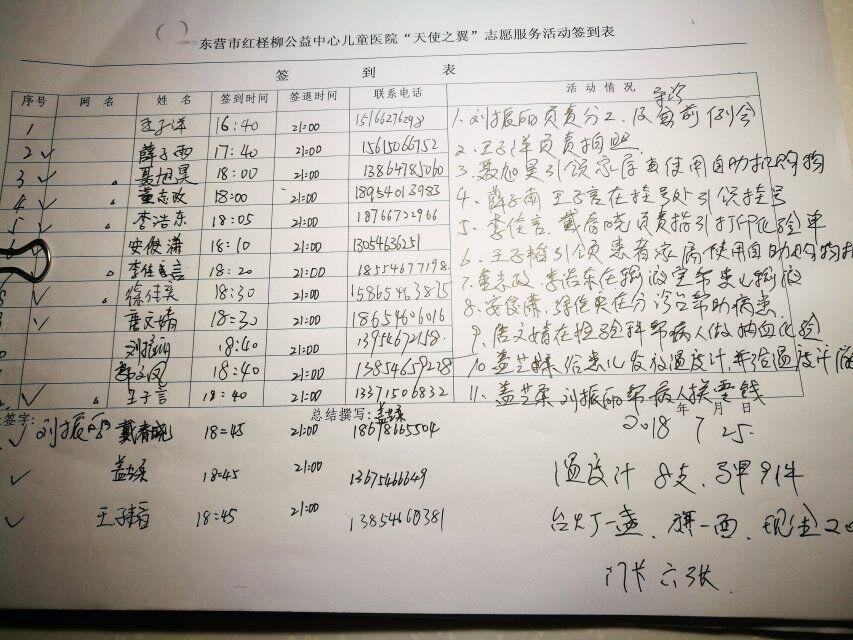 东营市红柽柳公益中心儿童医院“天使之翼”志愿服务活动签到表
签 到 表
序号 网 名 姓 名 签到时间 签退时间 联系电话 活动情况
1 王子洋 16:40 21:00
1. 刘振丽负责分工,及会前例会
2 ✓ 薛子雨 17:40 21:00 15615066752
2. 王子洋负责拍照
3 ✓ 聂旭昊 18:00 21:00 13864785060
3. 聂旭昊引领家属使用自助机购物
4 ✓ 董志政 18:00 21:00 18954013983
4. 薛子雨 王子言在挂号处引领挂号
5 ✓ 李浩东 18:05 21:00 18766722966
5. 李佳言、戴春晓负责指引打印化验单
安俊潇 18:10 21:00 13054636251
6. 引领患者家属使用自助购物机
李佳言 18:20 21:00 18554677198
7. 董志政、李浩东在输液室帮患儿输液
✓ 徐佳奕 18:30 21:00 15865463875
8. 安俊潇、徐佳奕在分诊台帮助病患
✓ 唐文婧 18:30 21:00 18654606016
9. 唐文婧在检验科帮病人做抽血化验
刘振丽 18:40 21:00 13954672158
10. 给患儿发放温度计,并给温度计
18:40 21:00 13854659228
11. 刘振丽帮病人换零钱
✓ 王子言 18:40 21:00 13371506832
签字: 刘振丽 总结撰写: 年 月 日
✓ 戴春晓 18:45 21:00 18678665504
2018 7 25
✓ 18:45 21:00 13675466649
温度计 8支、马甲91件
✓ 18:45 21:00 13854660381
台灯一盏、旗一面、现金
门卡六张